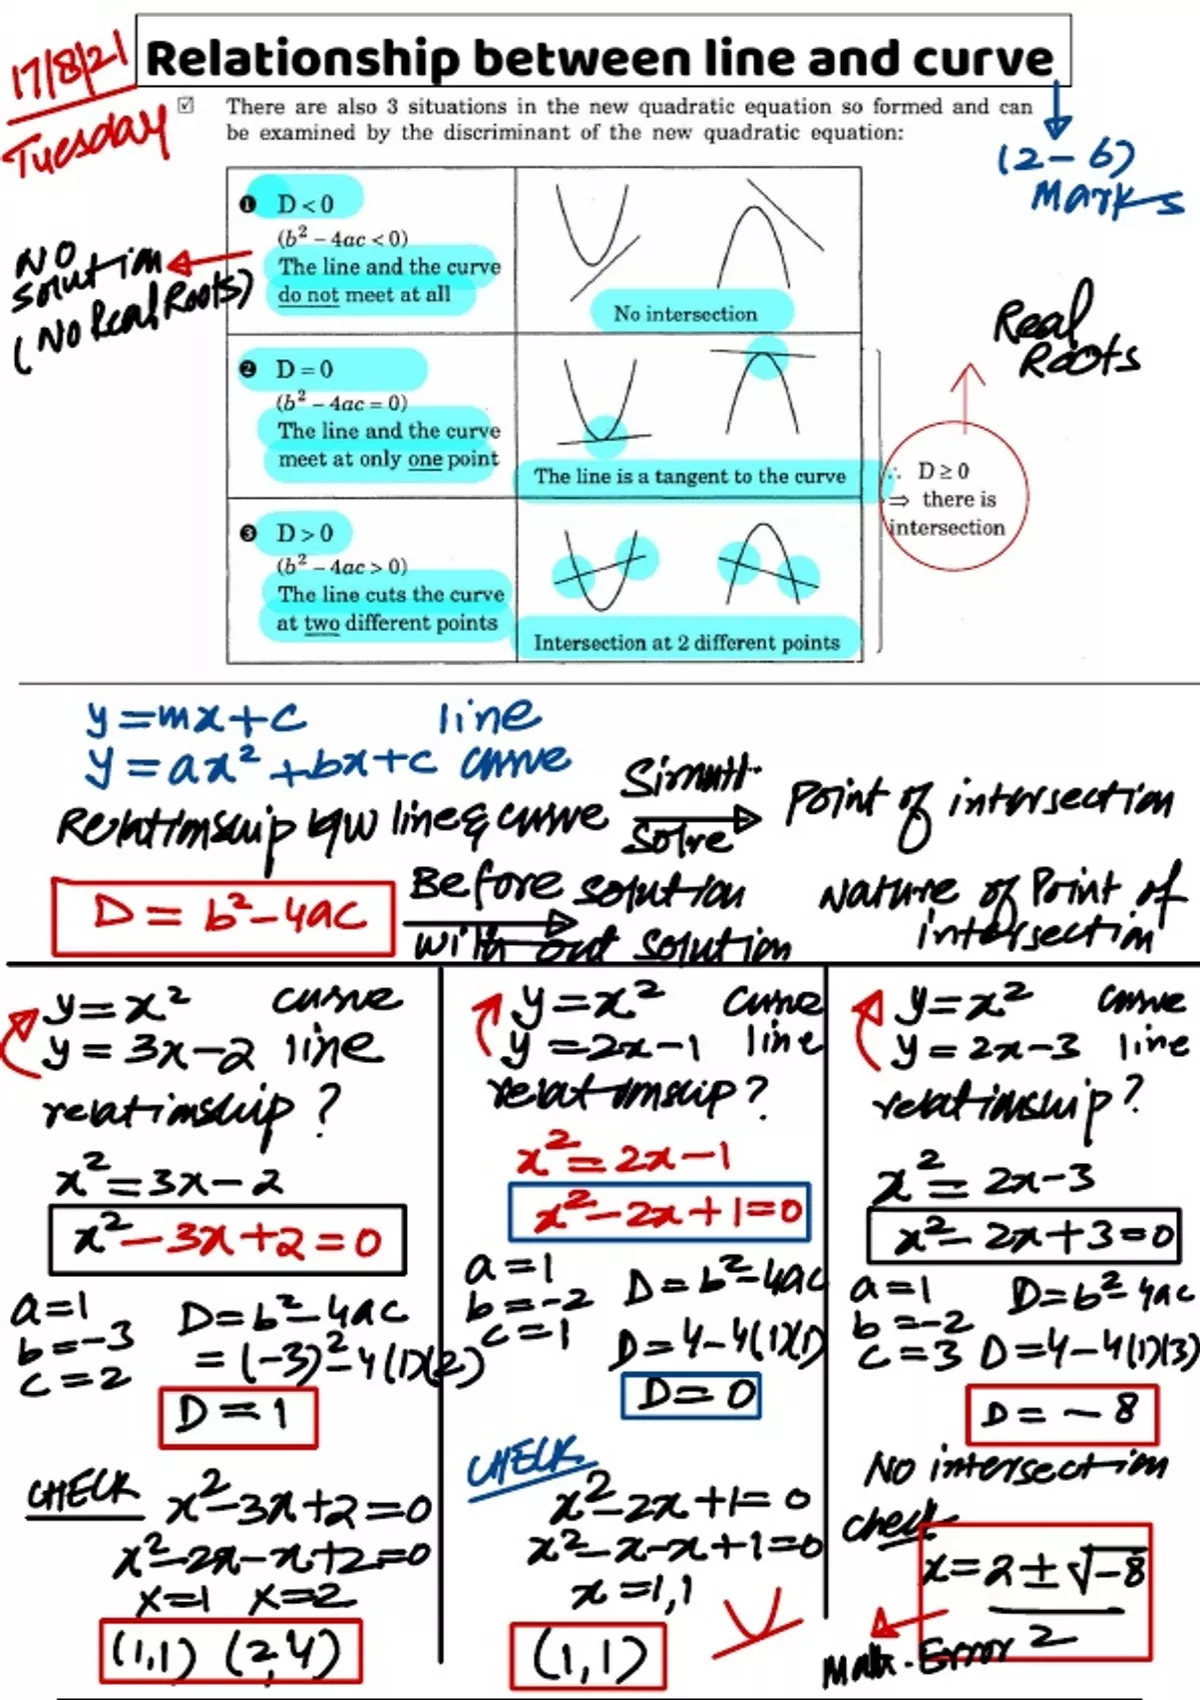 17/8/21
Tuesday
Relationship between line and curve
(2-6)
Marks
☑ There are also 3 situations in the new quadratic equation so formed and can
be examined by the discriminant of the new quadratic equation:
❶ D < 0
(b² – 4ac < 0)
The line and the curve
do not meet at all
No intersection
No
solution
(No Real Roots)
❷ D = 0
(b² – 4ac = 0)
The line and the curve
meet at only one point
The line is a tangent to the curve
❸ D > 0
(b² – 4ac > 0)
The line cuts the curve
at two different points
Intersection at 2 different points
Real
Roots
∴ D ≥ 0
⇒ there is
intersection
y = mx + c line
y = ax² + bx + c curve
Relationship b/w line & curve
Simult.
Solve
Point of intersection
D = b² - 4ac
Before solution
with-out solution
Nature of Point of
intersection
y = x² curve
y = 3x - 2 line
relationship?
x² = 3x - 2
x² - 3x + 2 = 0
a = 1
b = -3
c = 2
D = b² - 4ac
= (-3)² - 4(1)(2)
D = 1
CHECK
x² - 3x + 2 = 0
x² - 2x - x + 2 = 0
x = 1 x = 2
(1,1) (2,4)
y = x² curve
y = 2x - 1 line
relationship?
x² = 2x - 1
x² - 2x + 1 = 0
a = 1
b = -2
c = 1
D = b² - 4ac
D = 4 - 4(1)(1)
D = 0
CHECK
x² - 2x + 1 = 0
x² - x - x + 1 = 0
x = 1,1
(1,1)
y = x² curve
y = 2x - 3 line
relationship?
x² = 2x - 3
x² - 2x + 3 = 0
a = 1
b = -2
c = 3
D = b² - 4ac
D = 4 - 4(1)(3)
D = -8
No intersection
check
x = 2 ± √-8
2
Math-Error